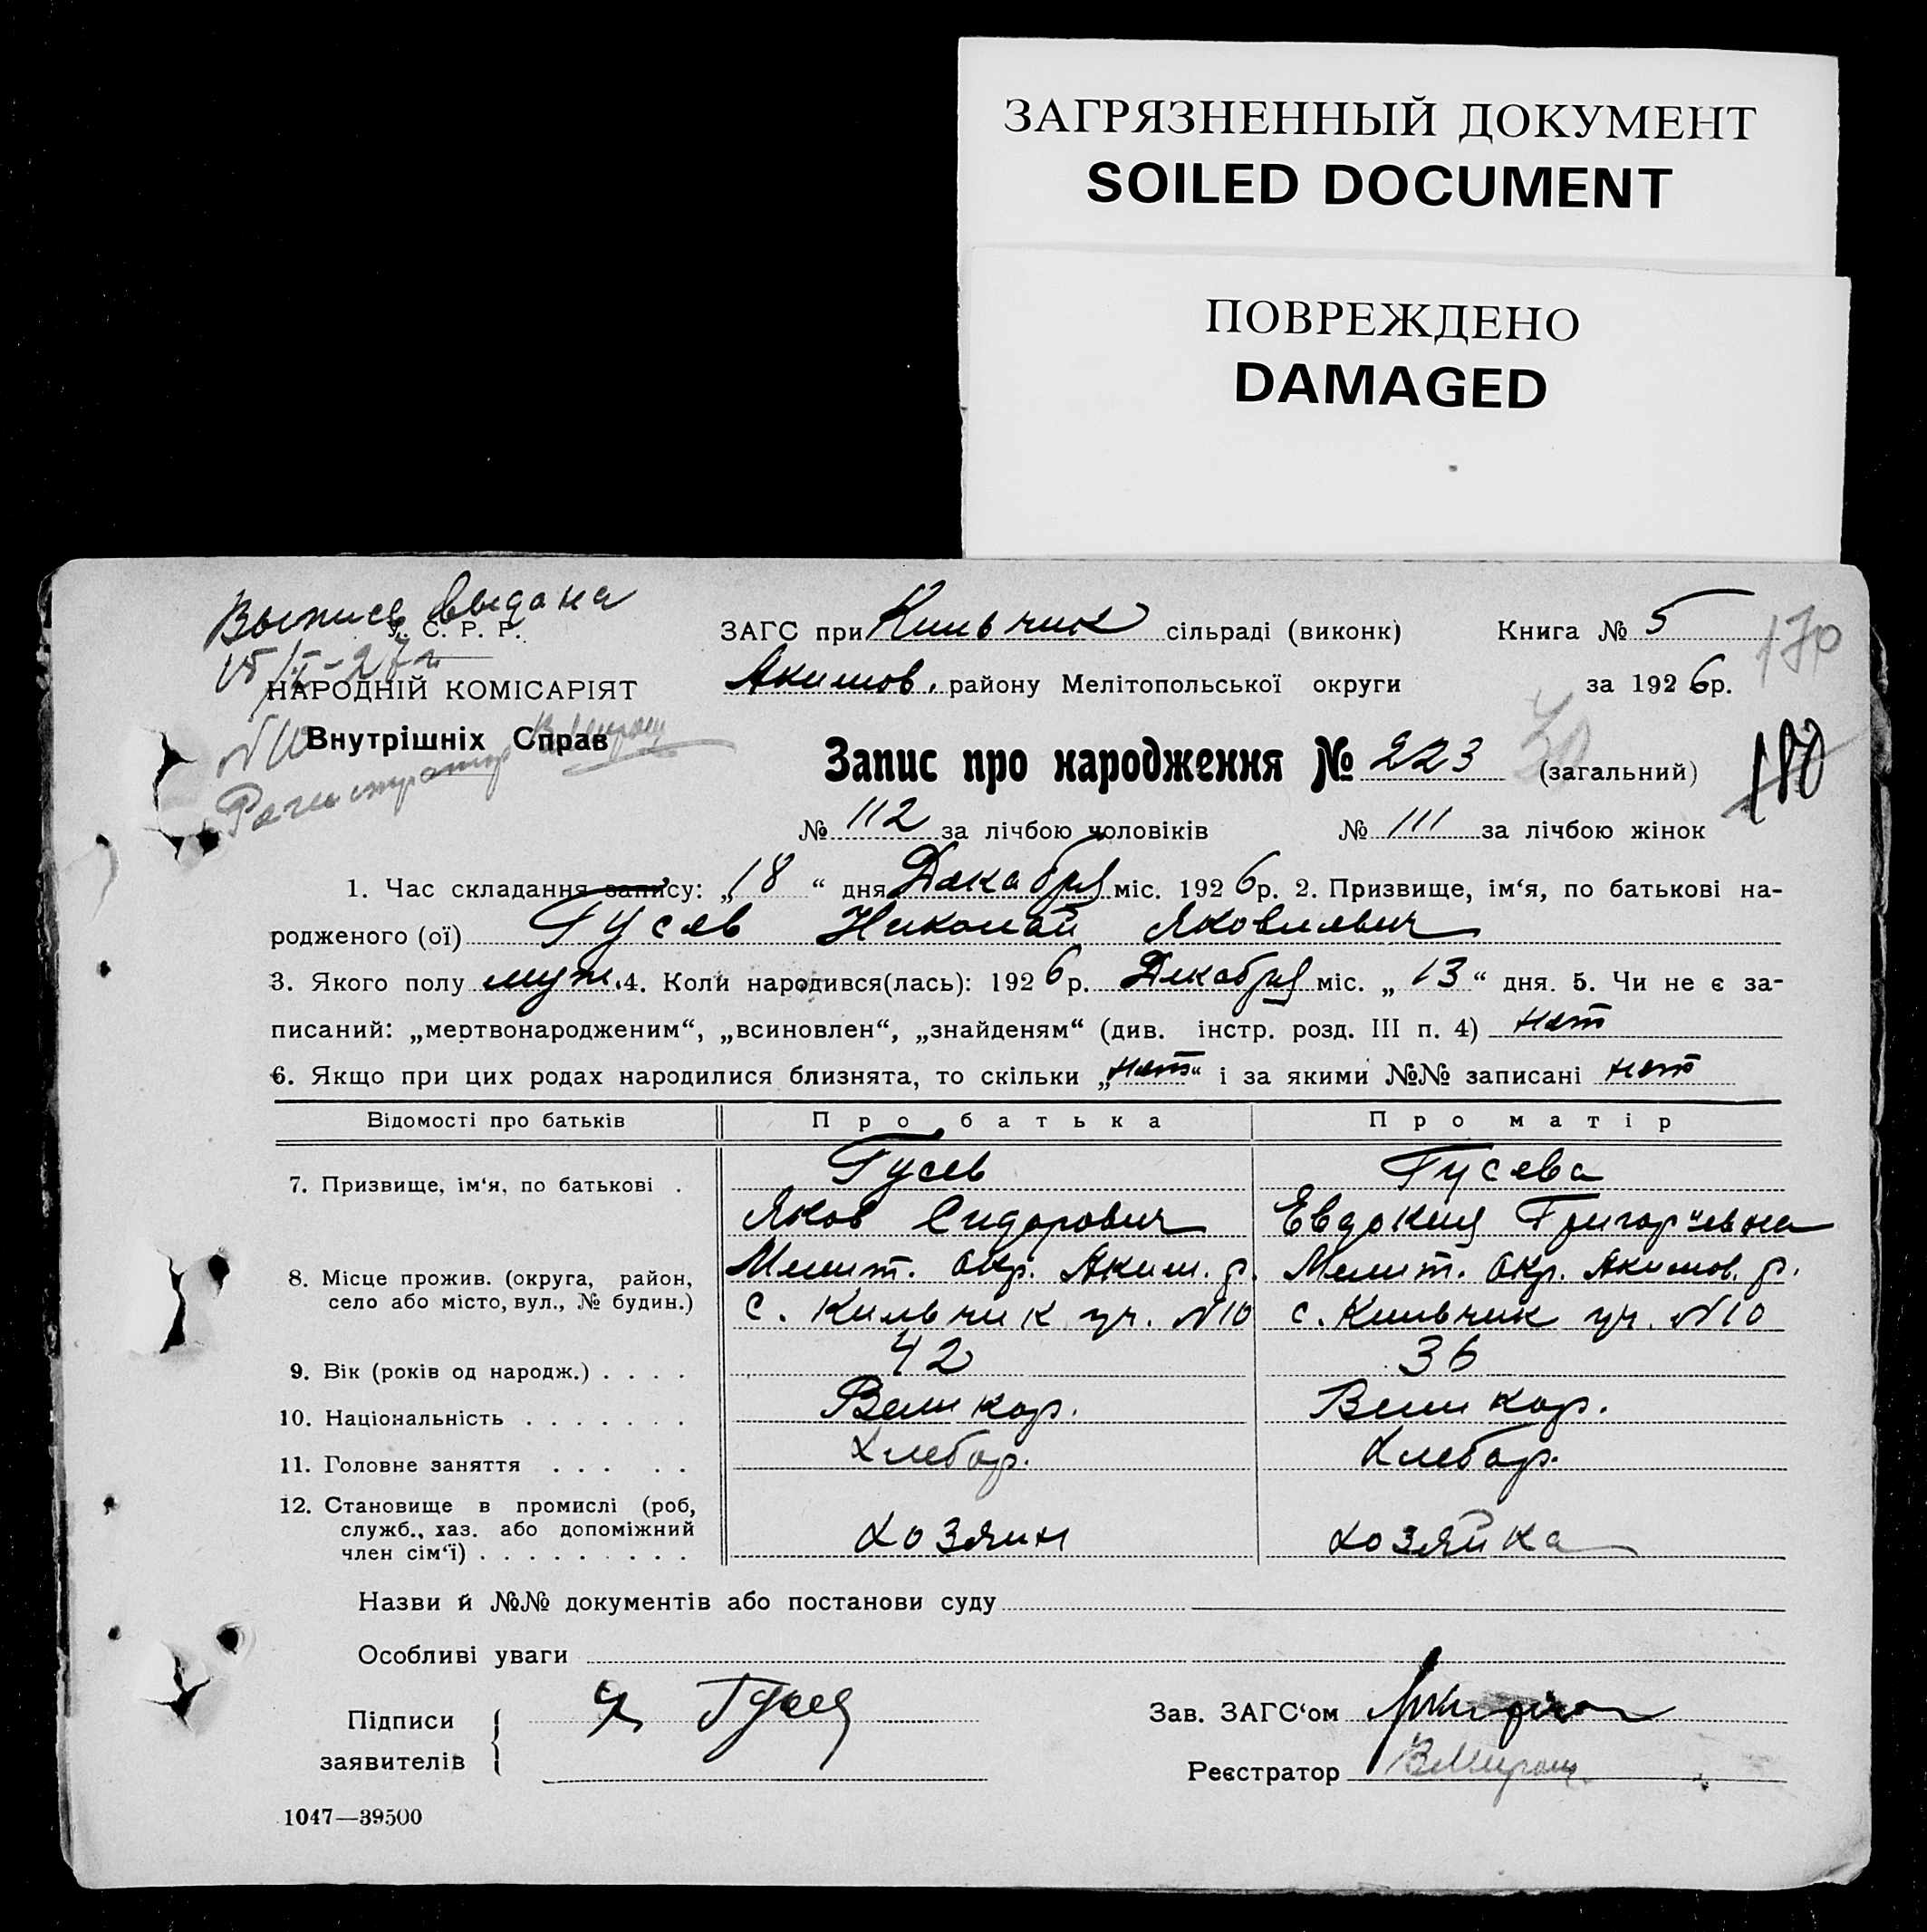 ЗАГРЯЗНЕННЫЙ ДОКУМЕНТ
SOILED DOCUMENT
ПОВРЕЖДЕНО
DAMAGED
Выпись выдана
У. С. Р. Р.
НАРОДНІЙ КОМІСАРІЯТ
Внутрішніх Справ
Регистратор
ЗАГС при Кильчик сільраді (виконк) Книга № 5
170
Акимов. району Мелітопольської округи за 1926р.
Запис про народження № 223 (загальний)
180
№ 112 за лічбою чоловіків № 111 за лічбою жінок
1. Час складання запису: „18“ дня Декабря міс. 1926р. 2. Призвище, ім‘я, по батькові на-
родженого (ої) Гусев Николай Яковлевич
3. Якого полу муж. 4. Коли народився(лась): 1926р. Декабря міс. „13“ дня. 5. Чи не є за-
писаний: „мертвонародженим“, „всиновлен“, „знайденям“ (див. інстр. розд. III п. 4) нет
6. Якщо при цих родах народилися близнята, то скільки „нет“ і за якими №№ записані нет
Відомості про батьків Про батька Про матір
7. Призвище, ім‘я, по батькові . Гусев Гусева
Яков Сидорович Евдокия Григорьевна
8. Місце прожив. (округа, район, Мелит. окр. Аким. р. Мелит. окр. Акимов. р.
село або місто, вул., № будин.) с. Кильчик уч. N10 с. Кильчик уч. N10
9. Вік (років од народж.) . . . . 42 36
10. Національність . . . . . . . Великор. Великор.
11. Головне заняття . . . . . Хлебор. Хлебор.
12. Становище в промислі (роб,
служб., хаз. або допоміжний
член сім‘ї) . . . . . . . . . хозяин хозяйка
Назви й №№ документів або постанови суду
Особливі уваги
Підписи Я Гусев Зав. ЗАГС‘ом
заявителів Реєстратор
1047—39500